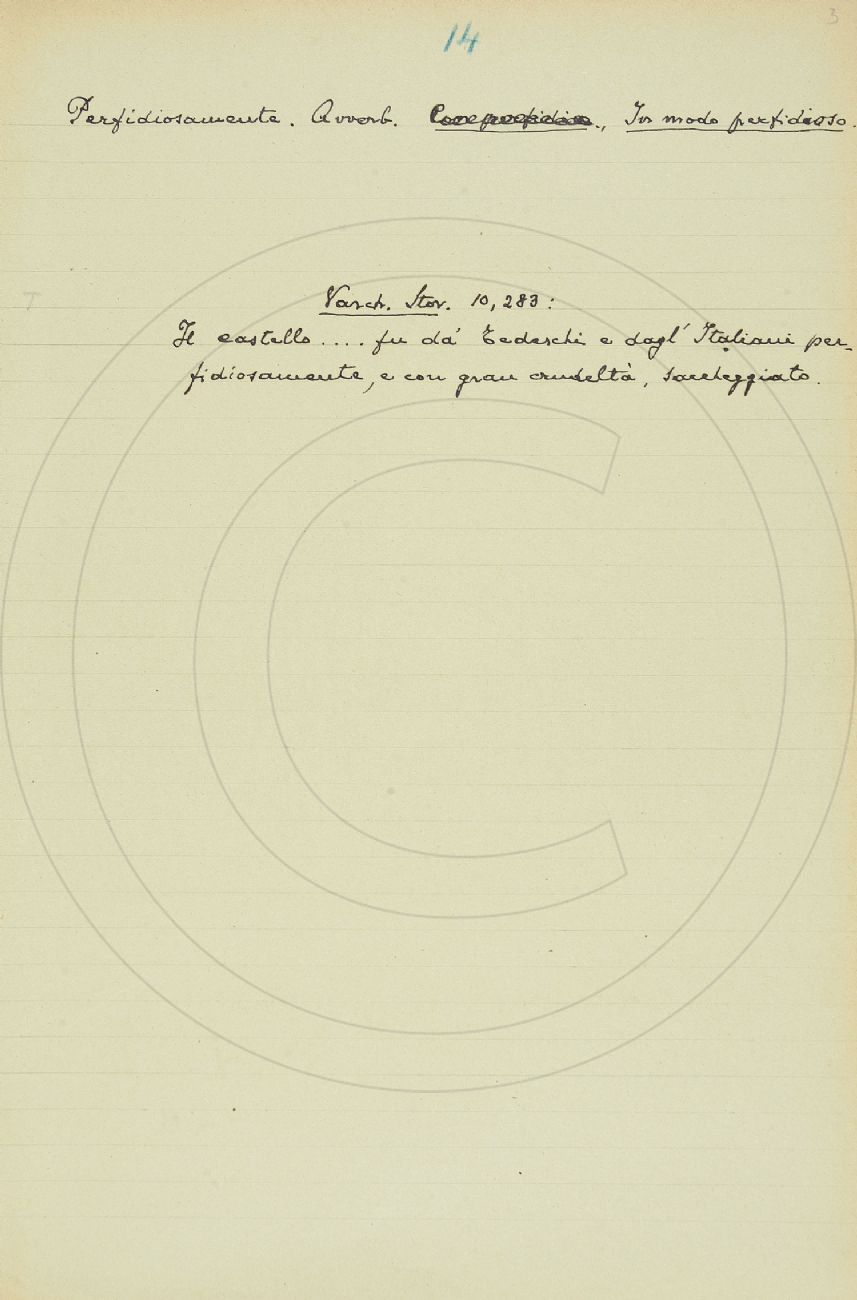 3
14
Perfidiosamente. Avverb. Con perfidia., In modo perfidioso.
T
Varch. Stor. 10, 283:
Il castello .... fu da' Tedeschi e dagl' Italiani per-
fidiosamente, e con gran crudeltà, saccheggiato.